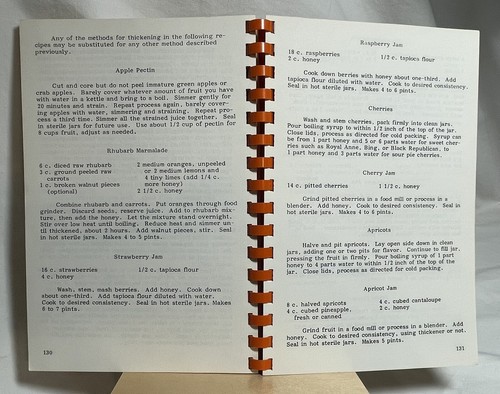 Any of the methods for thickening in the following re-
cipes may be substituted for any other method described
previously.
Apple Pectin
Cut and core but do not peel immature green apples or
crab apples. Barely cover whatever amount of fruit you have
with water in a kettle and bring to a boil. Simmer gently for
20 minutes and strain. Repeat process again, barely cover-
ing apples with water, simmering and straining. Repeat pro-
cess a third time. Simmer all the strained juice together. Seal
in sterile jars for future use. Use about 1/2 cup of pectin for
8 cups fruit, adjust as needed.
Rhubarb Marmalade
6 c. diced raw rhubarb 2 medium oranges, unpeeled
3 c. ground peeled raw or 2 medium lemons and
carrots 4 tiny limes (add 1/4 c.
1 c. broken walnut pieces more honey)
(optional) 2 1/2 c. honey
Combine rhubarb and carrots. Put oranges through food
grinder. Discard seeds, reserve juice. Add to rhubarb mix-
ture, then add the honey. Let the mixture stand overnight.
Stir over low heat until boiling. Reduce heat and simmer un-
til thickened, about 2 hours. Add walnut pieces, stir. Seal
in hot sterile jars. Makes 4 to 5 pints.
Strawberry Jam
16 c. strawberries 1/2 c. tapioca flour
4 c. honey
Wash, stem, mash berries. Add honey. Cook down
about one-third. Add tapioca flour diluted with water.
Cook to desired consistency. Seal in hot sterile jars. Makes
6 to 7 pints.
130
Raspberry Jam
18 c. raspberries 1/2 c. tapioca flour
2 c. honey
Cook down berries with honey about one-third. Add
tapioca flour diluted with water. Cook to desired consistency.
Seal in hot sterile jars. Makes 4 to 6 pints.
Cherries
Wash and stem cherries, pack firmly into clean jars.
Pour boiling syrup to within 1/2 inch of the top of the jar.
Close lids, process as directed for cold packing. Syrup can
be from 1 part honey and 5 or 6 parts water for sweet cher-
ries such as Royal Anne, Bing, or Black Republican, to
1 part honey and 3 parts water for sour pie cherries.
Cherry Jam
14 c. pitted cherries 1 1/2 c. honey
Grind pitted cherries in a food mill or process in a
blender. Add honey. Cook to desired consistency. Seal in
hot sterile jars. Makes 4 to 6 pints.
Apricots
Halve and pit apricots. Lay open side down in clean
jars, adding one or two pits for flavor. Continue to fill jar,
pressing the fruit in firmly. Pour boiling syrup of 1 part
honey to 4 parts water to within 1/2 inch of the top of the
jar. Close lids, process as directed for cold packing.
Apricot Jam
8 c. halved apricots 4 c. cubed cantaloupe
4 c. cubed pineapple, 2 c. honey
fresh or canned
Grind fruit in a food mill or process in a blender. Add
honey. Cook to desired consistency, using thickener or not.
Seal in hot sterile jars. Makes 5 pints.
131